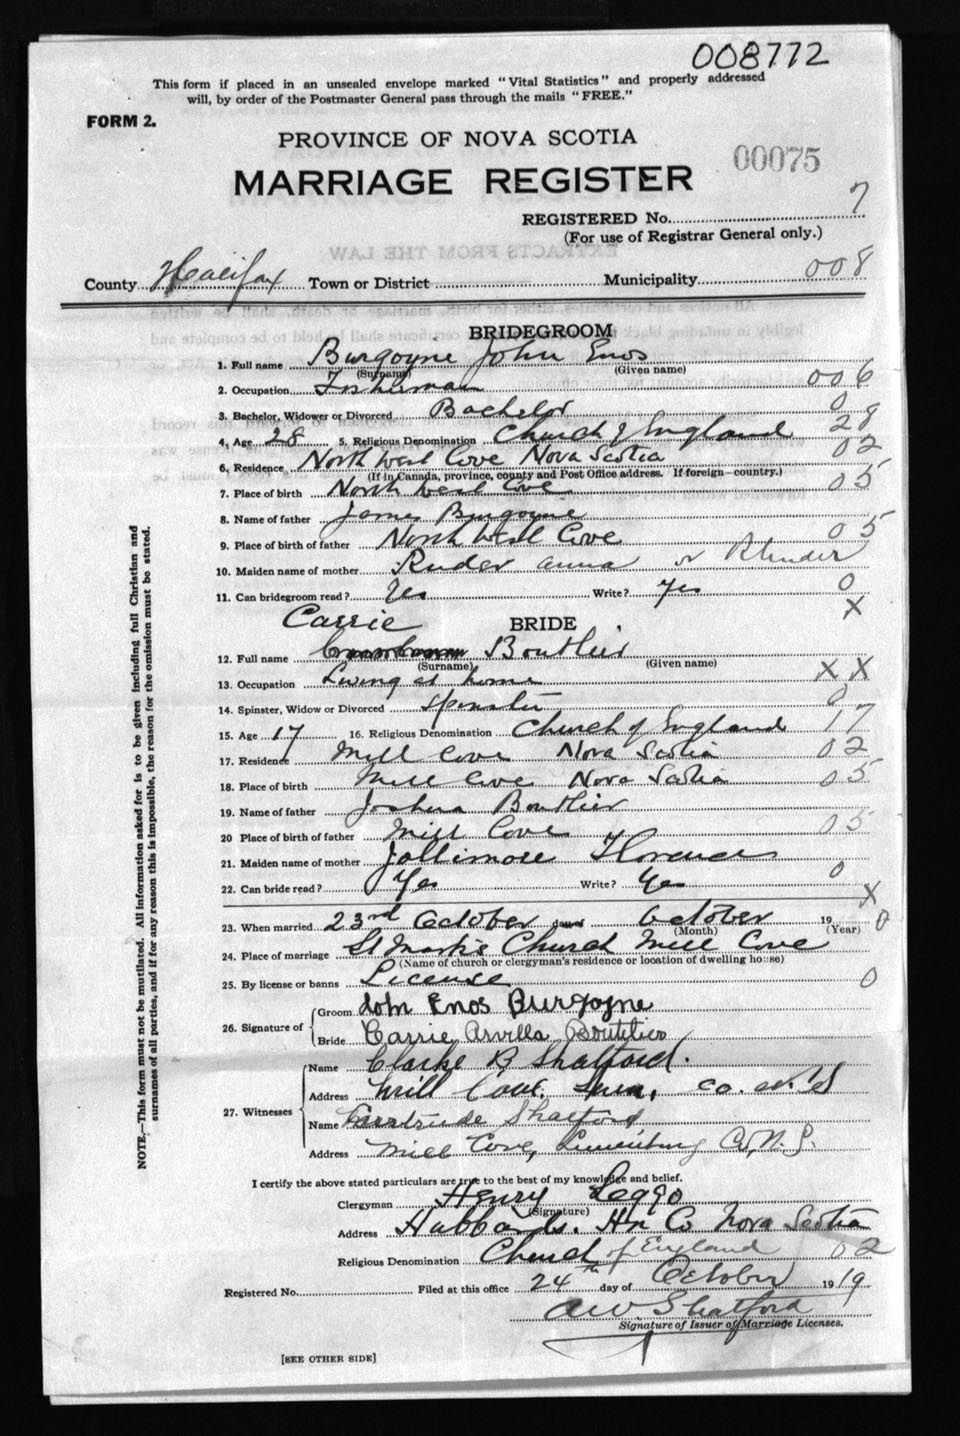 008772
This form if placed in an unsealed envelope marked "Vital Statistics" and properly addressed
will, by order of the Postmaster General pass through the mails "FREE."
FORM 2.
PROVINCE OF NOVA SCOTIA
00075
MARRIAGE REGISTER
REGISTERED No. 7
(For use of Registrar General only.)
County Halifax Town or District Municipality 008
BRIDEGROOM
1. Full name Burgoyne John Enos
(Surname) (Given name)
2. Occupation Fisherman 006
3. Bachelor, Widower or Divorced Bachelor 0
4, Age 28 5. Religious Denomination Church of England 28
6. Residence North West Cove Nova Scotia 02
(If in Canada, province, county and Post Office address. If foreign—country.)
7. Place of birth North West Cove 05
8. Name of father James Burgoyne
9. Place of birth of father North West Cove 05
10. Maiden name of mother Ruder anna or
11. Can bridegroom read? Yes Write? Yes 0
X
Carrie
BRIDE
12. Full name Boutlier
(Surname) (Given name)
13. Occupation Living at home XX
14. Spinster, Widow or Divorced Spinster 0
15. Age 17 16. Religious Denomination Church of England 17
17. Residence Mill Cove Nova Scotia 02
18. Place of birth Mill Cove Nova Scotia 05
19. Name of father Joshua Boutlier
20 Place of birth of father Mill Cove 05
21. Maiden name of mother Jollimore Florence
22. Can bride read? Yes Write? Yes 0
X
23. When married 23rd October October 19 0
(Month) (Year)
24. Place of marriage St Mark's Church Mill Cove
(Name of church or clergyman's residence or location of dwelling house)
25. By license or banns License 0
26. Signature of
Groom John Enos Burgoyne
Bride Carrie Arvilla Boutilier
27. Witnesses
Name Clarke B Shatford.
Address Mill Cove. Lun, co.
Name Gertrude Shatford
Address Mill Cove, Lunenburg Co, N. S.
I certify the above stated particulars are true to the best of my knowledge and belief.
Clergyman Henry Leggo
(Signature)
Address Hubbards. Hx Co Nova Scotia
Religious Denomination Church of England 02
Registered No. Filed at this office 24th day of October 1919
AW Shatford
Signature of Issuer of Marriage Licenses.
[SEE OTHER SIDE]
NOTE.—This form must not be mutilated. All information asked for is to be given including full Christian and
surnames of all parties, and if for any reason this is impossible, the reason for the omission must be stated.